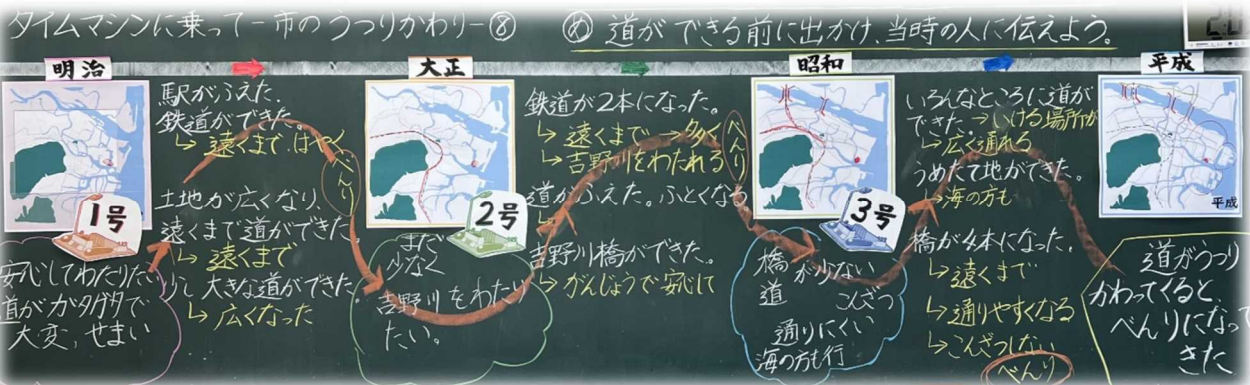 タイムマシンに乗って－市のうつりかわり－⑧
め 道ができる前に出かけ、当時の人に伝えよう。
明治
1号
安心してわたりたい
道がガタガタで
大変、せまい
駅がふえた。
鉄道ができた。
↳遠くまで、はやく
べんり
土地が広くなり、
遠くまで道ができた。
↳遠くまで
少し大きな道ができた。
↳広くなった
大正
2号
まだ
少なく
吉野川をわたり
たい。
鉄道が2本になった。
↳遠くまで→多く
べんり
↳吉野川をわたれる
道がふえた。ふとくなる
↳
吉野川橋ができた。
↳がんじょうで安心して
昭和
3号
橋が少ない
道 こんざつ
通りにくい
海の方も行
いろんなところに道が
できた。→いける場所が
↳広く通れる
うめたて地ができた。
↳海の方も
橋が4本になった。
↳遠くまで
↳通りやすくなる
↳こんざつしない
べんり
平成
平成
道がうつり
かわってくると、
べんりになって
きた